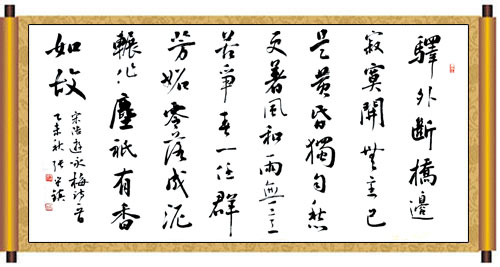 驛外斷橋邊
寂寞開無主已
是黃昏獨自愁
更著風和雨無意
苦爭春一任群
芳妬零落成泥
輾作塵祇有香
如故
宋陸游詠梅
乙未秋